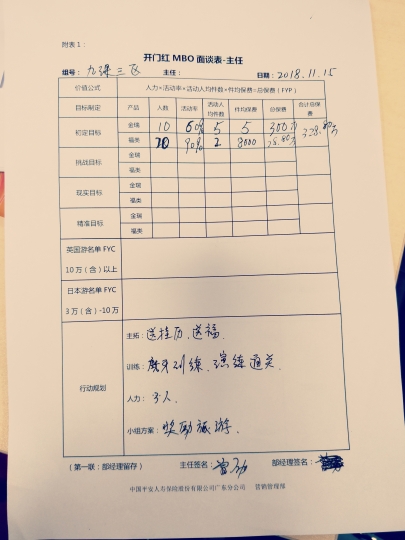 附表1：
开门红 MBO 面谈表-主任
组号：九课三区 主任： 日期：2018.11.15
价值公式 人力×活动率×活动人均件数×件均保费=总保费（FYP）
目标制定 产品 人数 活动率 活动人均件数 件均保费 总保费 合计总保费
初定目标 金瑞 10 60% 5 5 300万 328.80万
福类 20 90% 2 8000 28.80万
挑战目标 金瑞
福类
现实目标 金瑞
福类
精准目标 金瑞
福类
英国游名单 FYC
10万（含）以上
日本游名单 FYC
3万（含）-10万
行动规划
主拓：送挂历、送福.
训练：磨牙训练、演练通关.
人力：3人.
小组方案：奖励旅游.
（第一联：部经理留存） 主任签名： 部经理签名：
中国平安人寿保险股份有限公司广东分公司 营销管理部